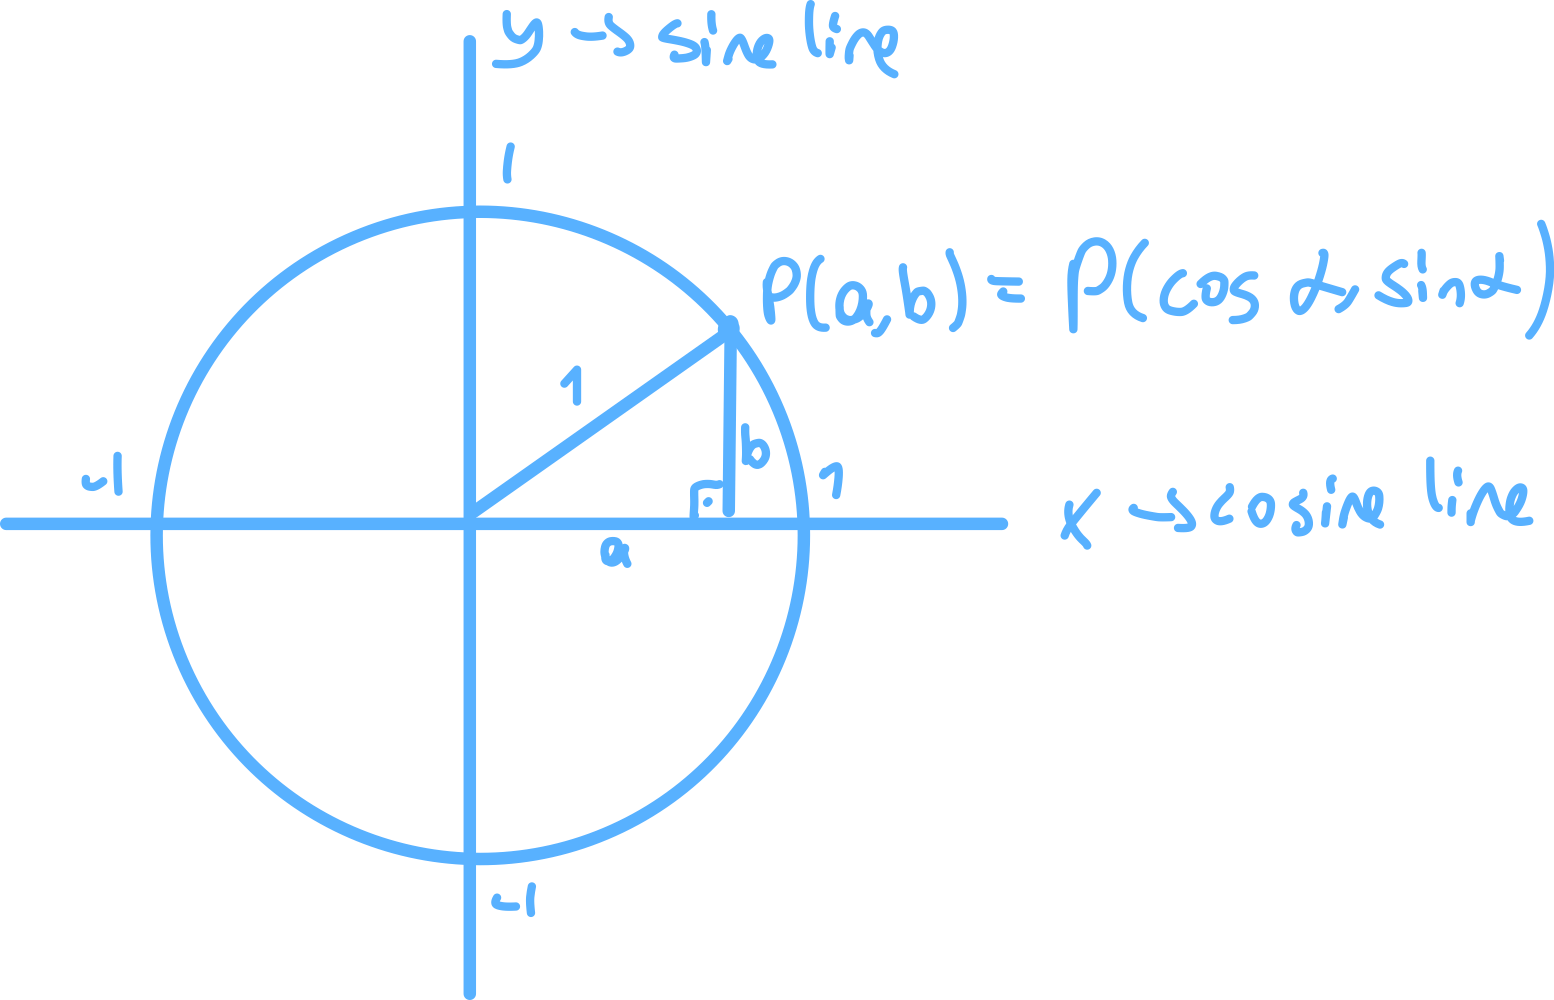 y → sine line
1
P(a,b) = P(cos α, sin α)
1
b
-1
1
x → cosine line
a
-1